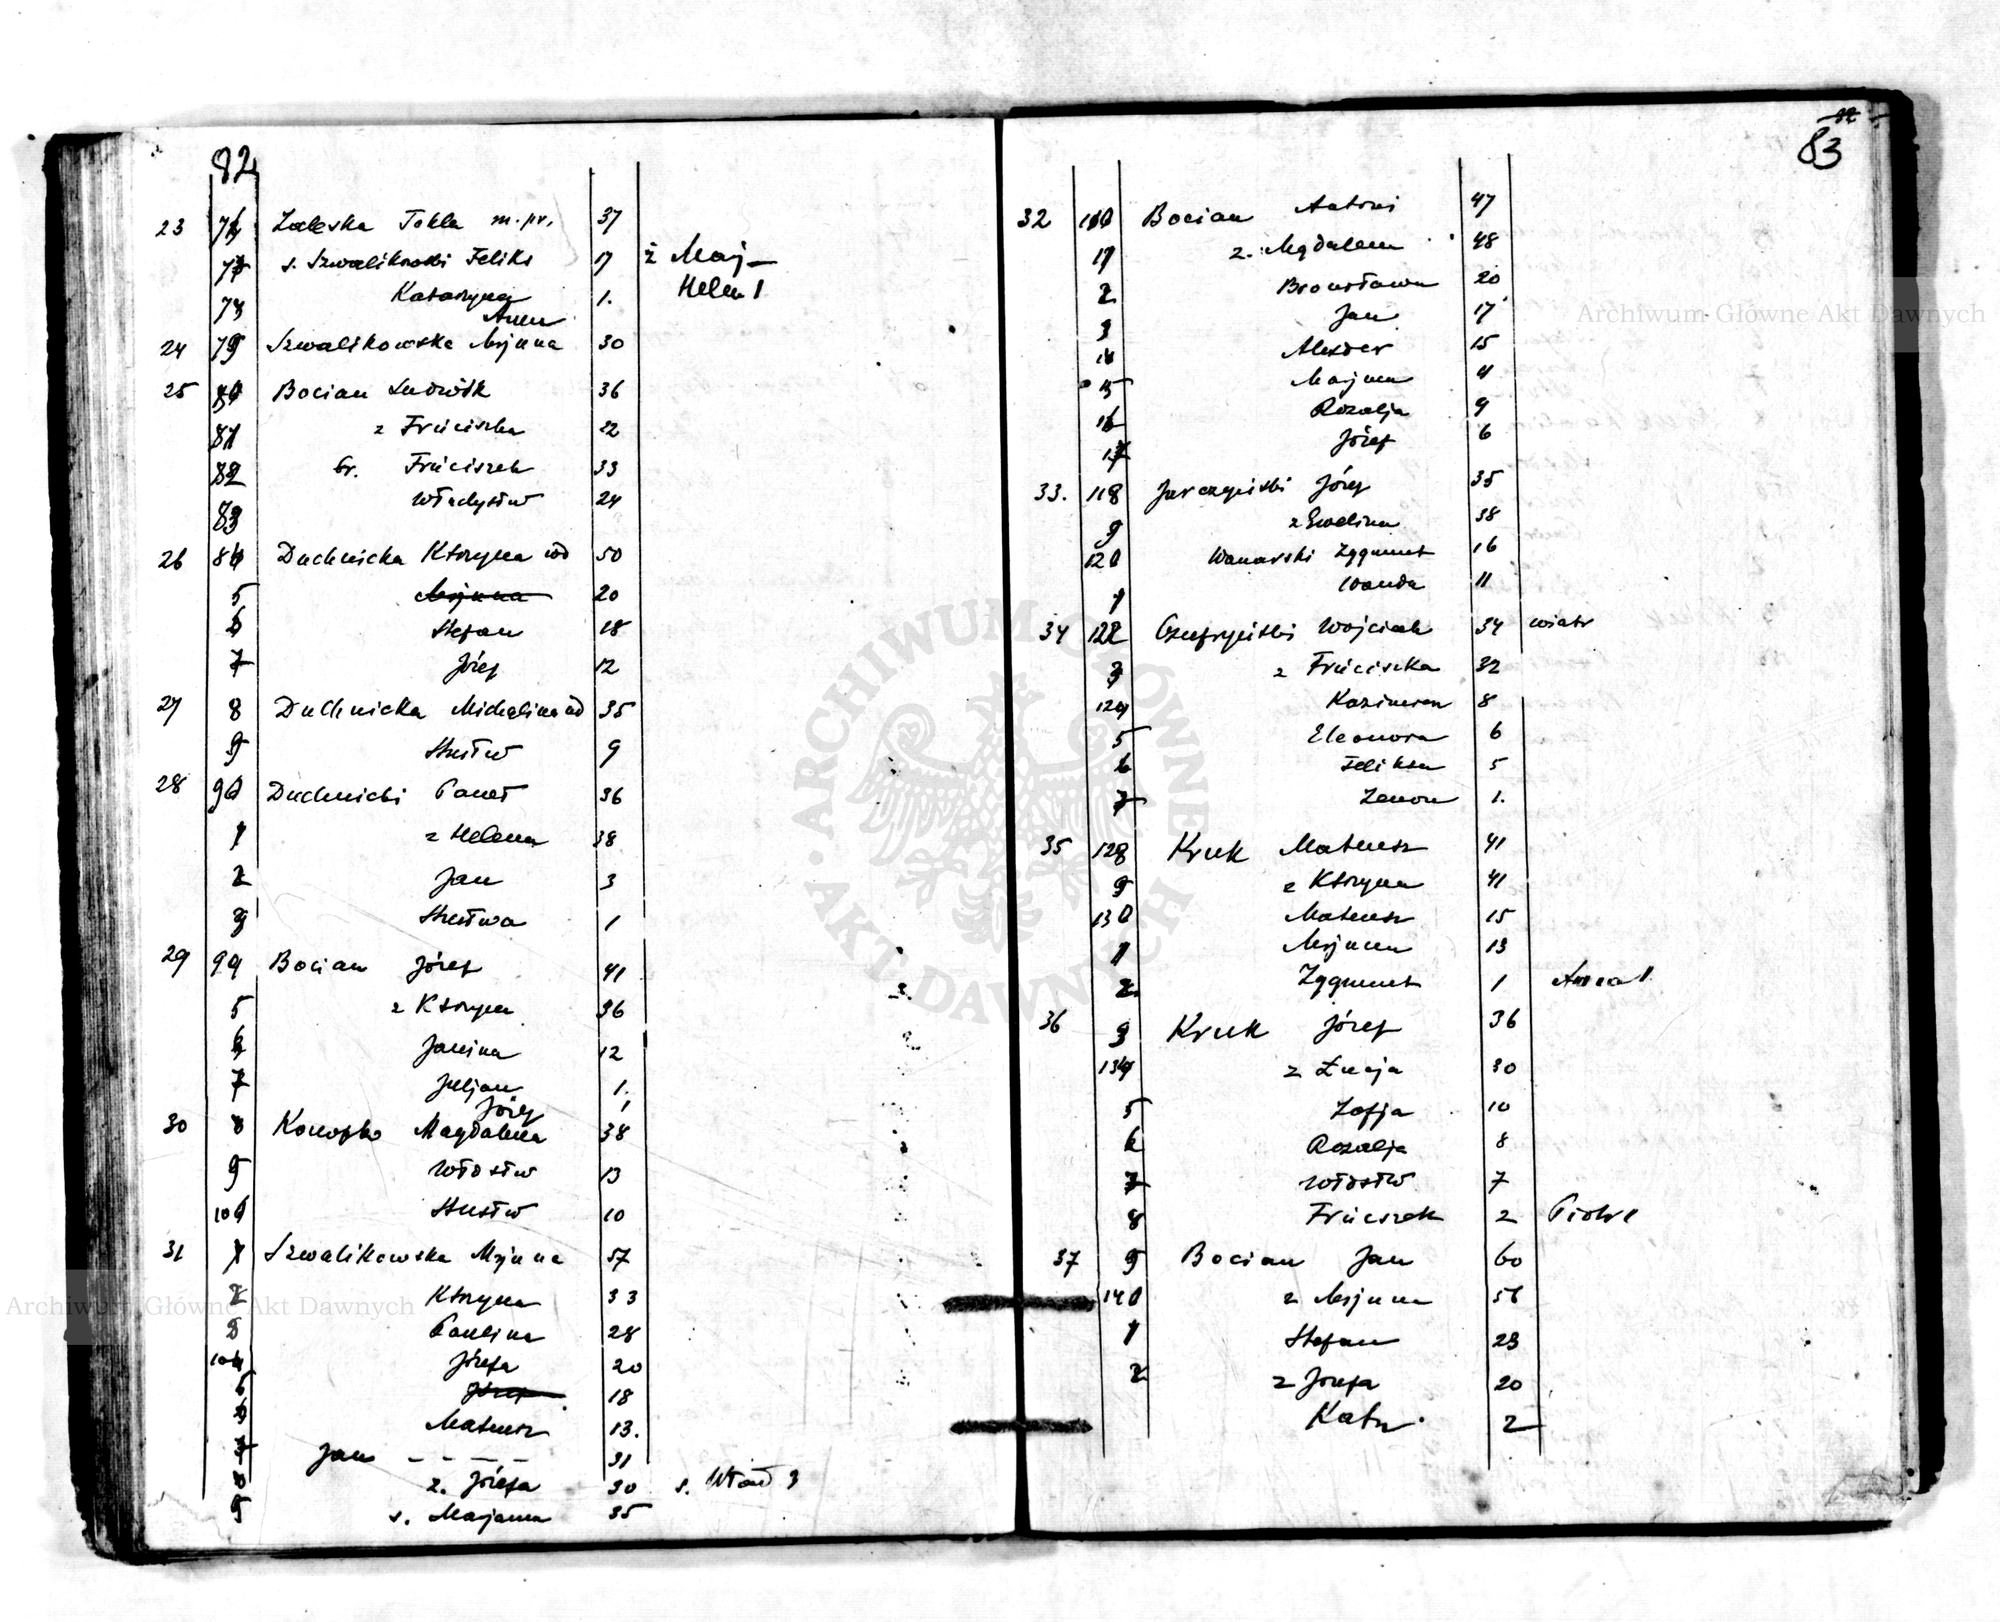 82
23 76 Zaleska Tekla m.pr. 37
77 s. Szwalikowski Feliks 17 ż Maj-
78 Katarzyna 1. Helen 1
Anna
24 79 Szwalikowska Mrjnna 30
25 80 Bocian Ludwik 36
81 z Frńciszka 22
82 br. Frńciszek 33
83 Władysłw 24
26 84 Duchnicka Ktrzyna wd 50
5 Mrjnna 20
6 Stefan 18
7 Józef 12
27 8 Duchnicka Michalina wd 35
9 Stnsłw 9
28 90 Duchnicki Paweł 36
1 z Helena 38
2 Jan 3
3 Stnsłwa 1
29 94 Bocian Józef 41
5 z Ktrzyna 36
6 Janina 12
7 Juljan 1.
Józef 1
30 8 Konopko Magdalena 38
9 Włdsłw 13
100 Stnsłw 10
31 1 Szwalikowska Mrjnna 57
2 Ktrzyna 33
3 Paulina 28
104 Józefa 20
5 Józef 18
Mateusz 13.
7 Jan - - - - 31
8 z. Józefa 30 s. Wład 3
9 s. Marjanna 35
82
83
32 110 Bocian Antoni 47
11 z. Mgdalena 48
2 Bronisława 20
3 Jan 17
14 Aleksder 15
15 Marjnna
16 Rozalja 9
17 Józef 6
33. 118 Jarczyński Józef 35
9 z Ewelina 38
120 Wanarski Zygmunt 16
1 Wanda 11
34 122 Czufryński Wojciech 34 wiatr
3 z Frńciszka 32
124 Kazimierz 8
5 Eleonora 6
6 Feliksa 5
7 Zenon 1.
35 128 Kruk Mateusz 41
9 z Ktrzyna 41
130 Mateusz 15
1 Mrjnna 13
2 Zygmunt 1 Anna 1
36 3 Kruk Józef 36
134 z Łucja 30
5 Zofja 10
6 Rozalja 8
7 Włdsłw 7
8 Frńcszek 2 Piotr 1
37 9 Bocian Jan 60
140 z Mrjnna 56
1 Stefan 23
2 z Józefa 20
Katrz. 2
Archiwum Główne Akt Dawnych
Archiwum Główne Akt Dawnych
ARCHIWUM GŁÓWNE • AKT DAWNYCH •